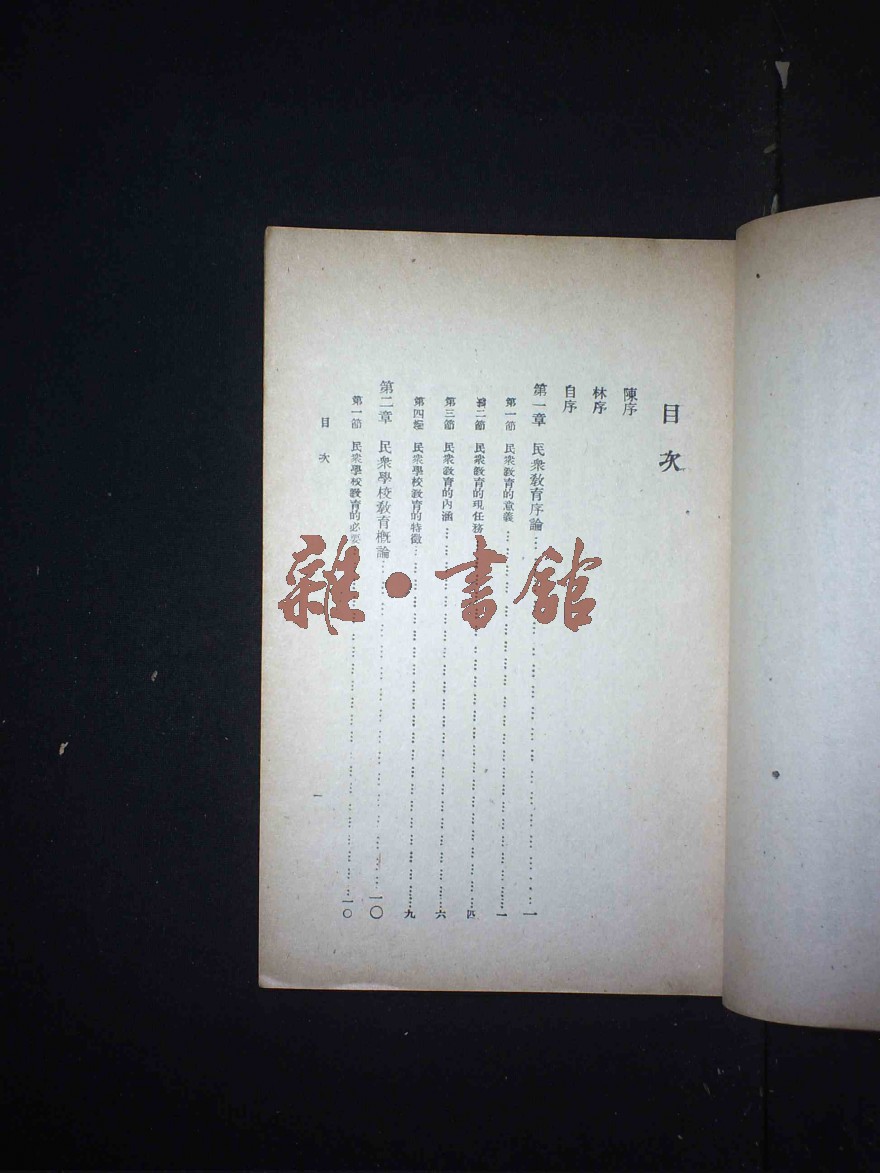 目次
陳序
林序
自序
第一章 民衆敎育序論 一
第一節 民衆敎育的意義 一
第二節 民衆敎育的現任務 四
第三節 民衆敎育的內涵 六
第四節 民衆學校敎育的特徵 九
第二章 民衆學校敎育概論 一〇
第一節 民衆學校敎育的必要 一〇
目次 一
雜•書館